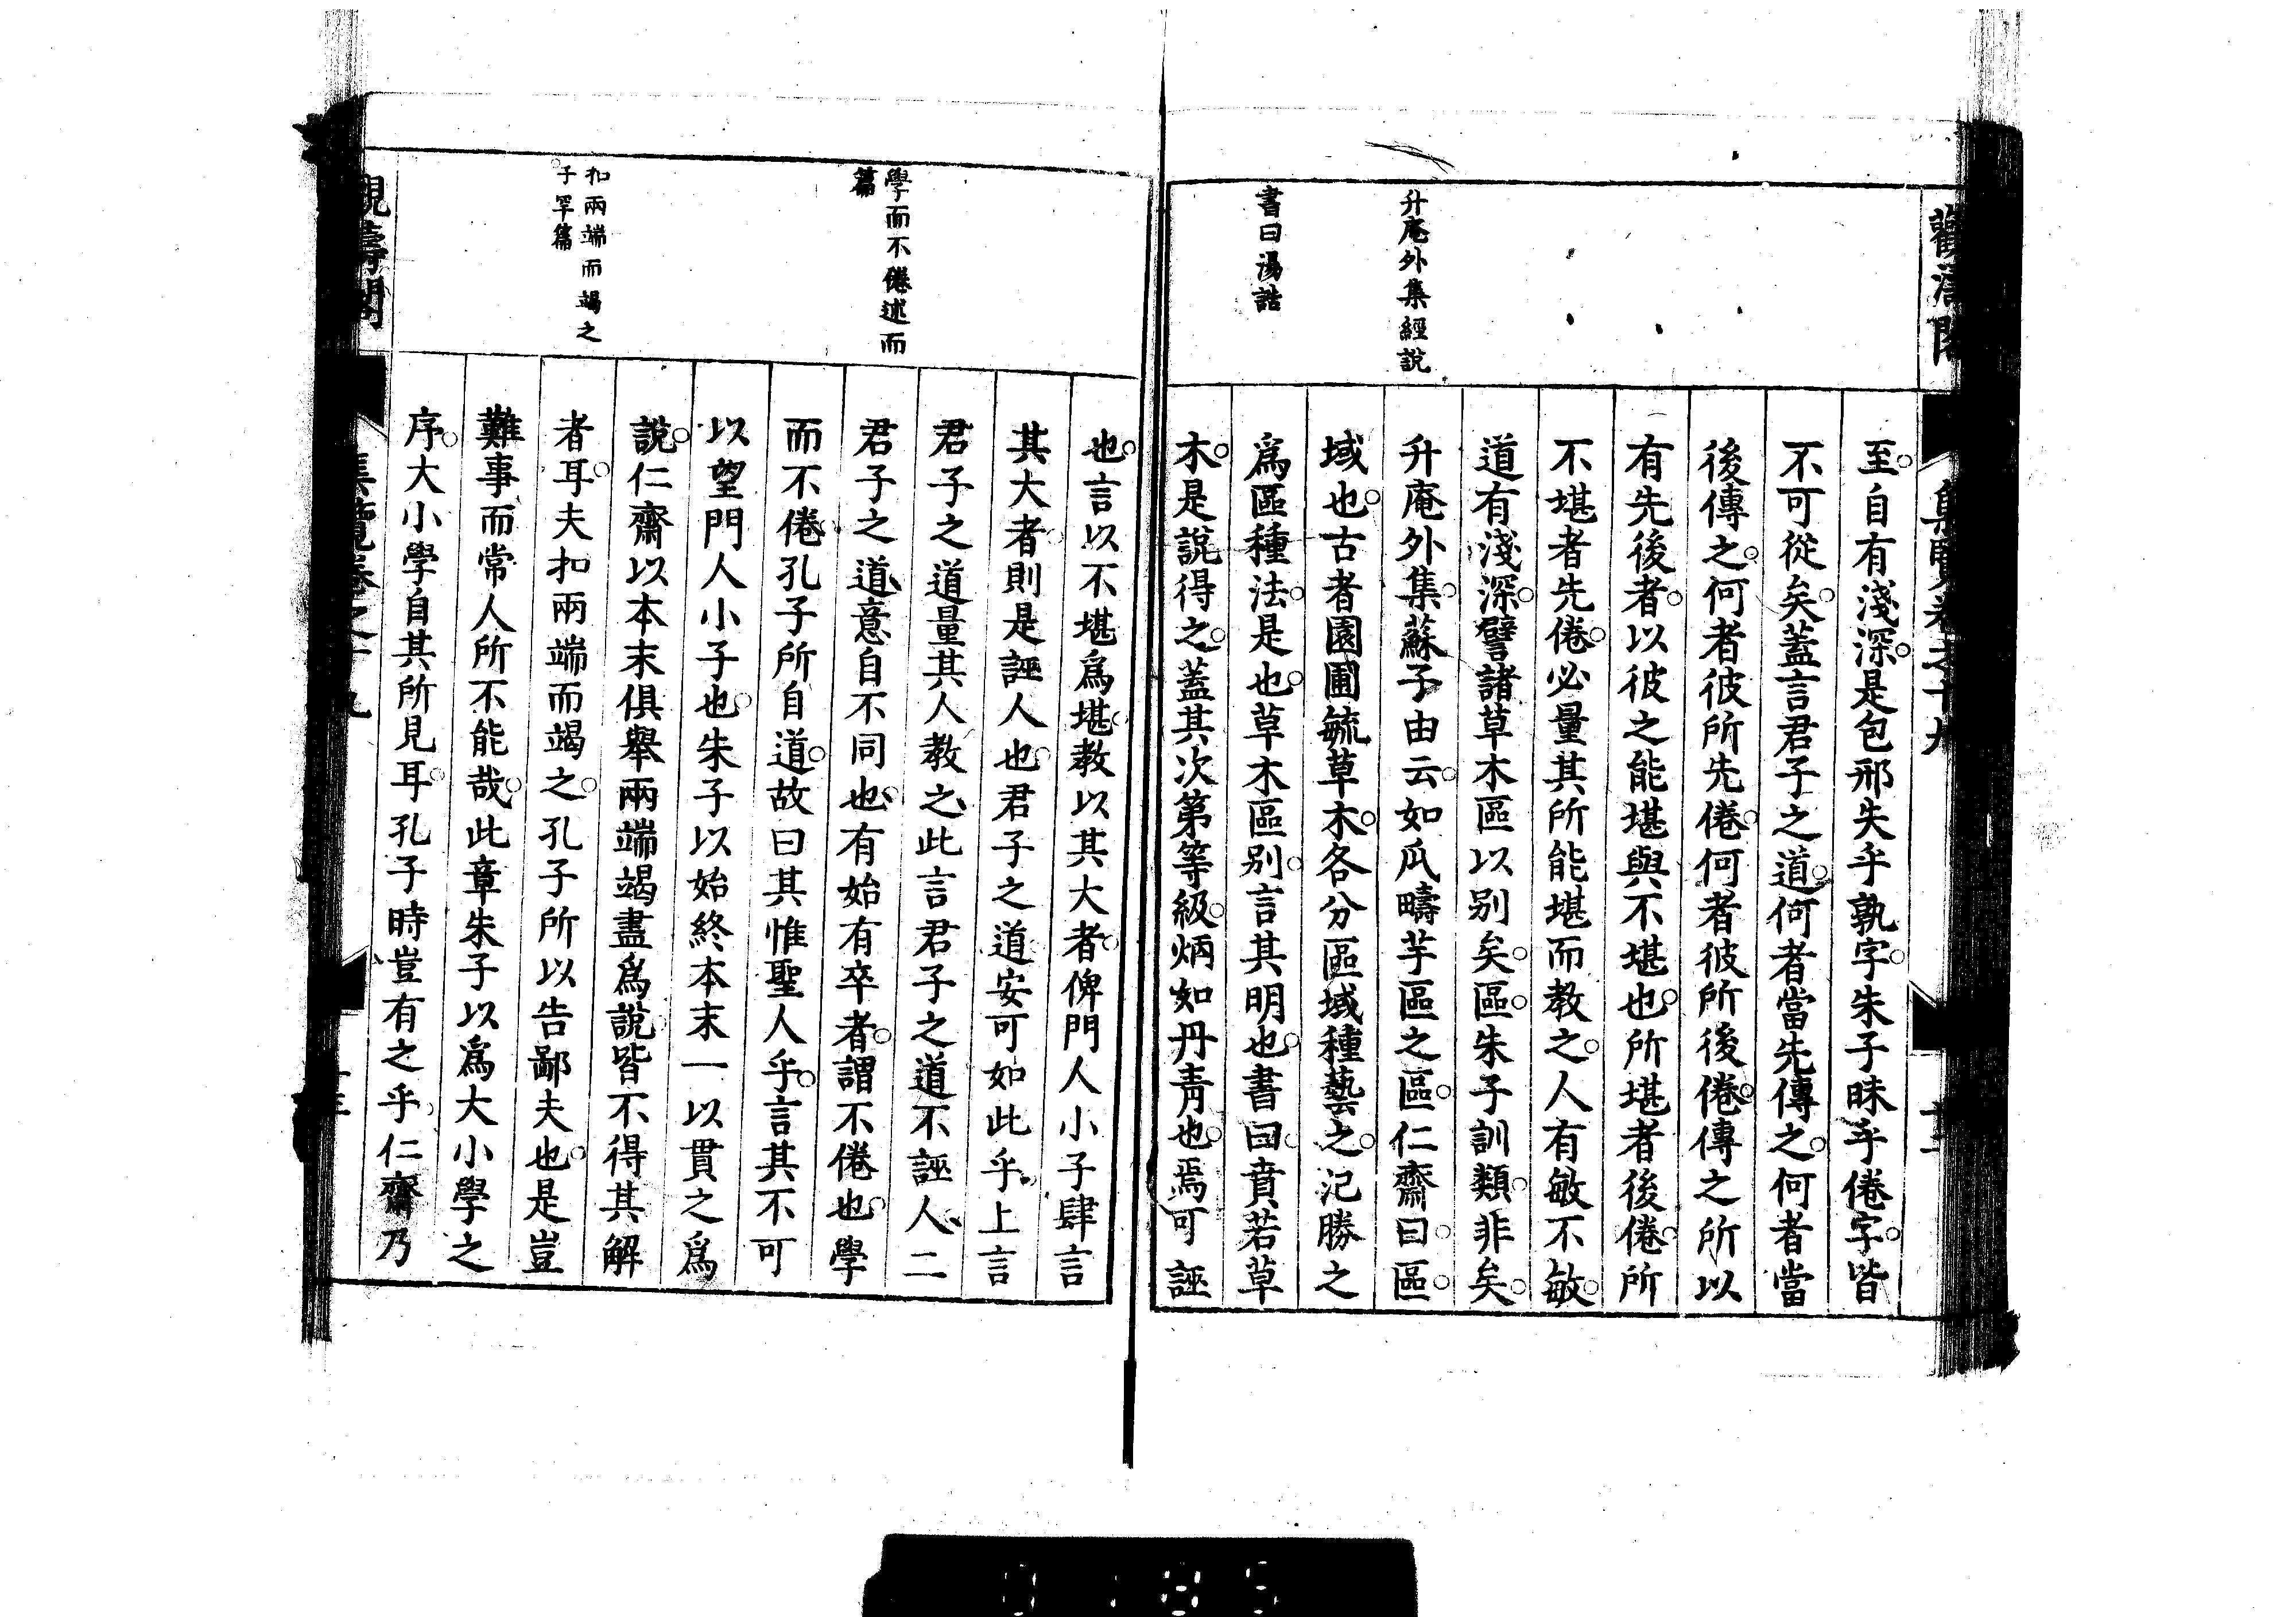 升庵外集經說
書曰湯誥
至自有淺深是包邢失乎孰字朱子昧乎倦字皆
不可從矣蓋言君子之道何者當先傳之何者當
後傳之何者彼所先倦何者彼所後倦傳之所以
有先後者以彼之能堪與不堪也所堪者後倦所
不堪者先倦必量其所能堪而教之人有敏不敏
道有淺深譬諸草木區以别矣區朱子訓類非矣
升庵外集蘇子由云如瓜疇芋區之區仁齋曰區
域也古者園圃毓草木各分區域種藝之氾勝之
爲區種法是也草木區别言其明也書曰賁若草
木是說得之蓋其次第等級炳如丹靑也焉可誣
學而不倦述而
篇
扣兩端而竭之
子罕篇
也言以不堪爲堪教以其大者俾門人小子肆言
其大者則是誣人也君子之道安可如此乎上言
君子之道量其人教之此言君子之道不誣人二
君子之道意自不同也有始有卒者謂不倦也學
而不倦孔子所自道故曰其惟聖人乎言其不可
以望門人小子也朱子以始終本末一以貫之爲
說仁齋以本末俱舉兩端竭盡爲說皆不得其解
者耳夫扣兩端而竭之孔子所以告鄙夫也是豈
難事而常人所不能哉此章朱子以爲大小學之
序大小學自其所見耳孔子時豈有之乎仁齋乃